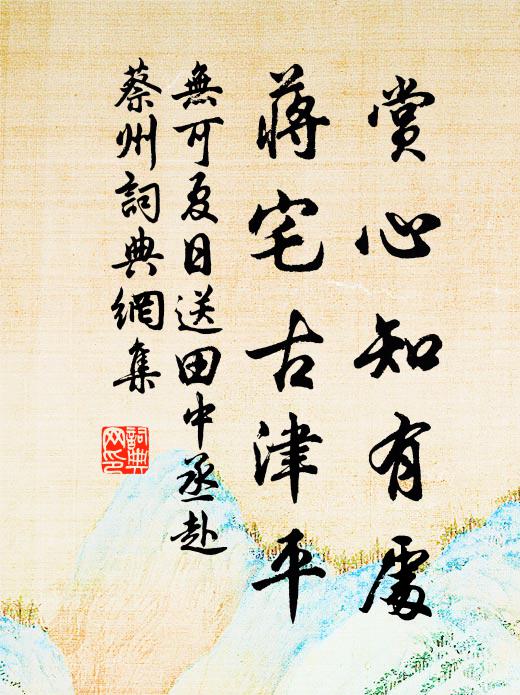 賞心知有處
蔣宅古津平
無可夏日送田中丞赴
蔡州詞典網集
詞典网印